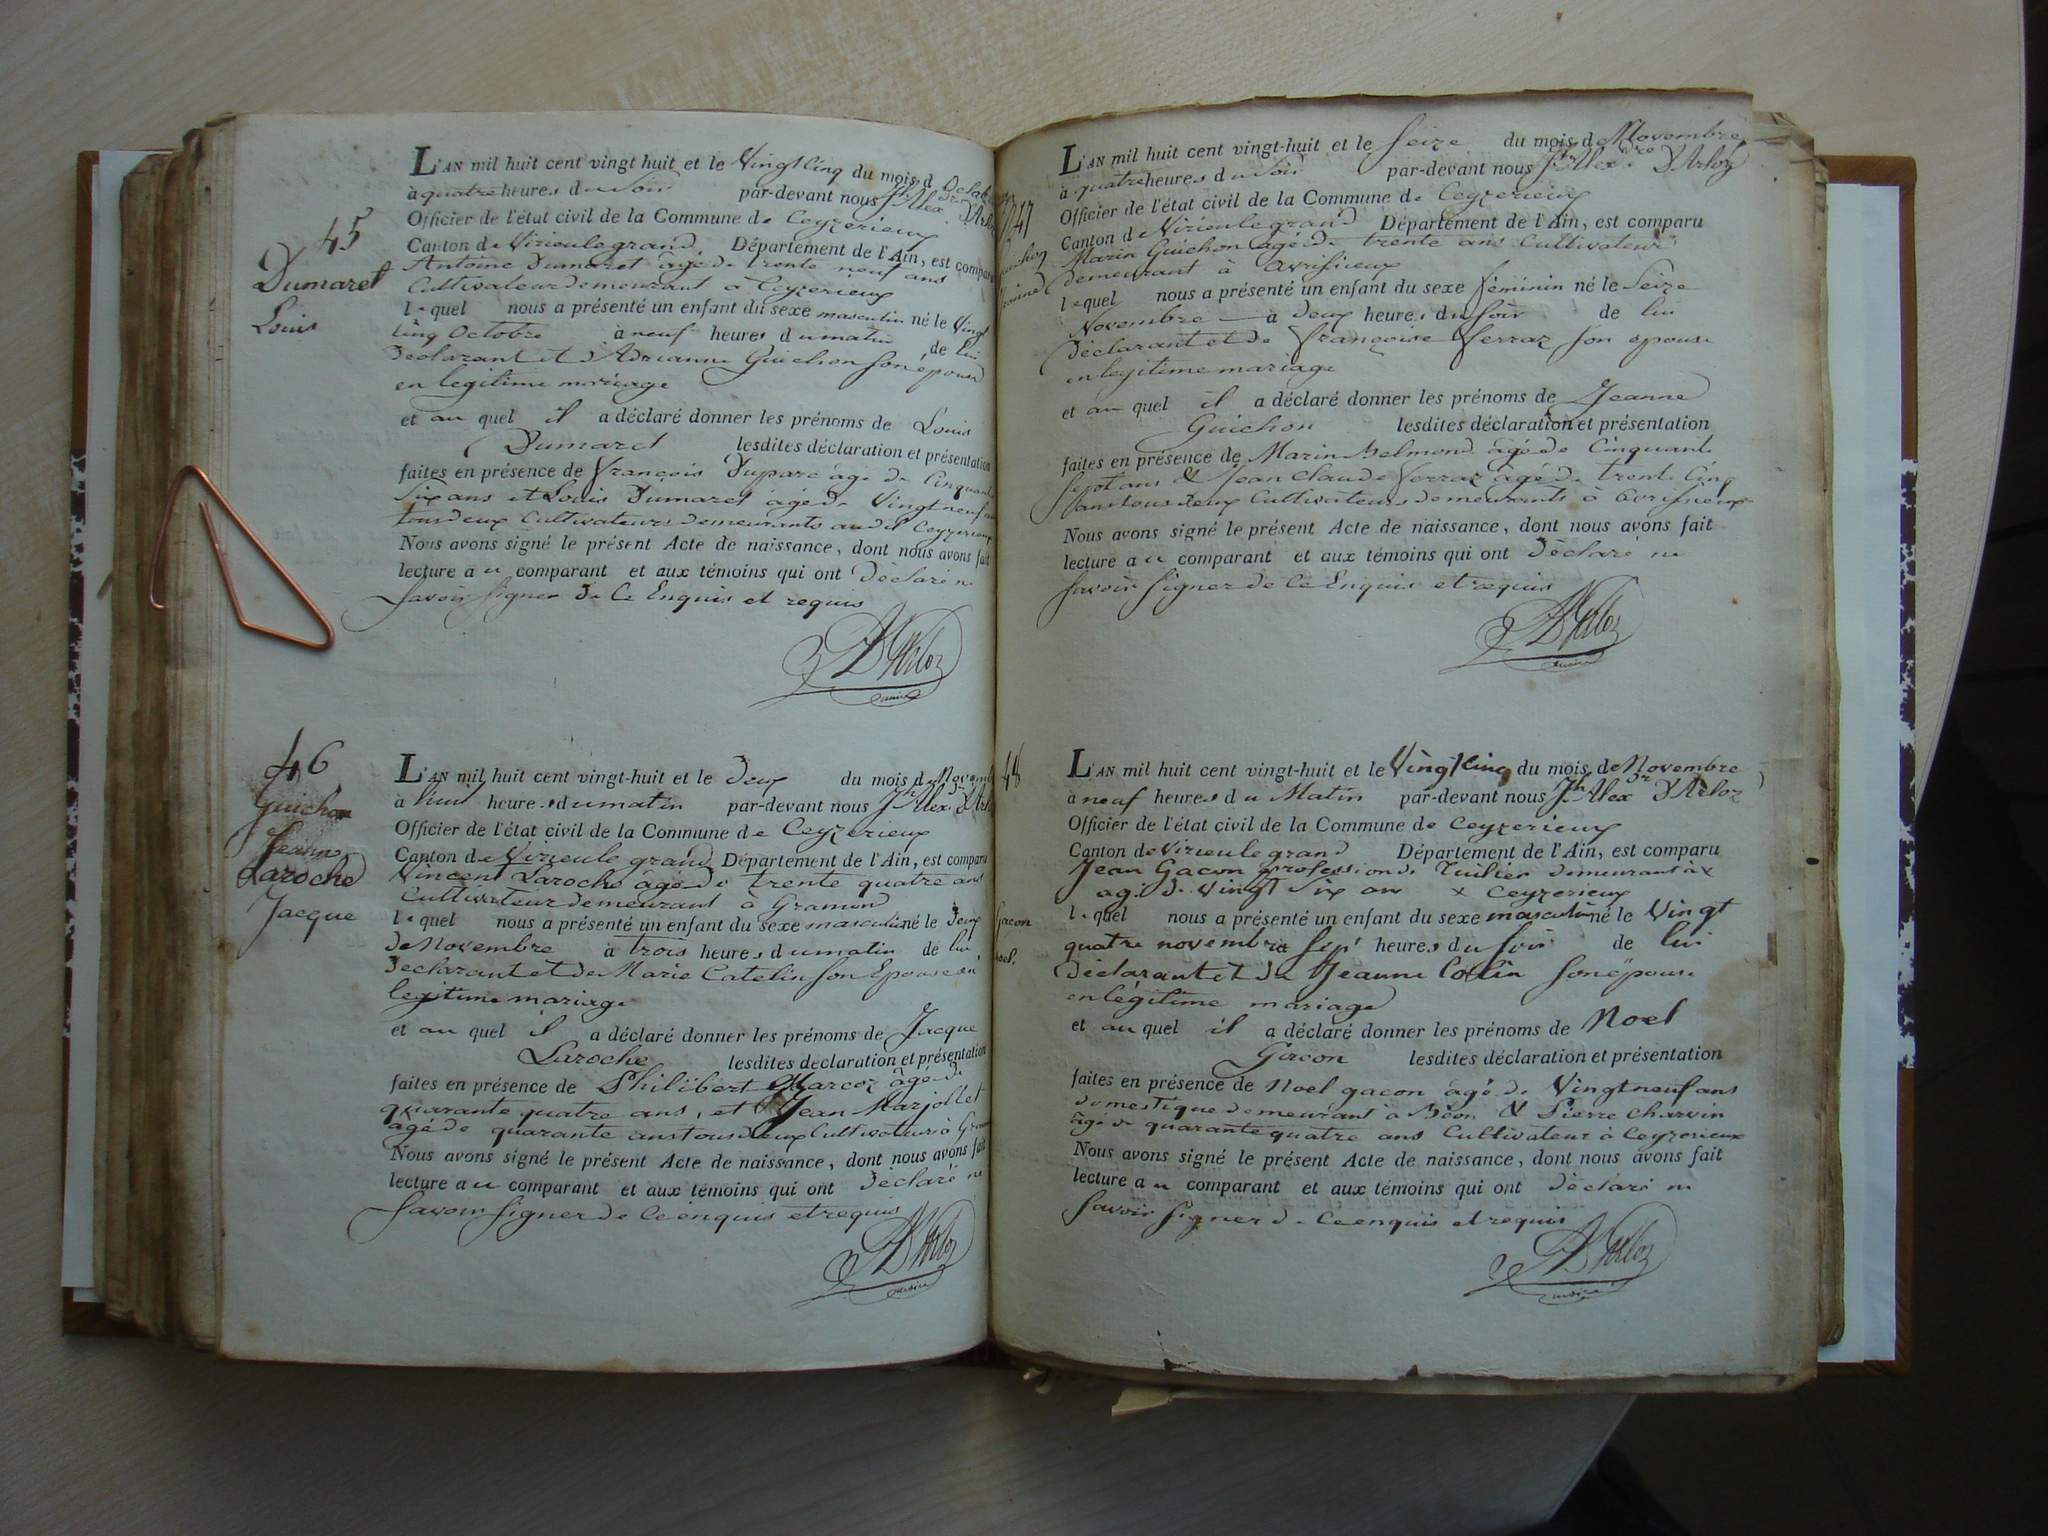 45
Dumaret
Louis
L'AN mil huit cent vingt huit et le Vingt Cinq du mois d Octob
à quatre heures du Soir par-devant nous Jh Alex.dre D'Arlo
Officier de l'état civil de la Commune de Ceyzerieux
Canton de Virieulegrand Département de l'Ain, est comparu
Antoine Dumaret âgé de trente neuf ans
Cultivateur demeurant à Ceyzerieux
lequel nous a présenté un enfant du sexe masculin né le Vingt
Cinq Octobre à neuf heures du matin de lui
Declarant et d'Adrianne Guichon Son épouse
en legitime mariage
et au quel il a déclaré donner les prénoms de Louis
Dumaret lesdites déclaration et présentation
faites en présence de François Duparc âgé de Cinquante
Six ans et Louis Dumaret âgé de Vingt neuf an
tous deux Cultivateurs demeurants au dit Ceyzerieux
Nous avons signé le présent Acte de naissance, dont nous avons fait
lecture au comparant et aux témoins qui ont Déclaré ne
Savoir Signer de Ce Enquis et requis
D'Arloz
maire
46
Guichon
Jeanne
Laroche
Jacque
L'AN mil huit cent vingt-huit et le Deux du mois de Novemb
à huit heures du matin par-devant nous Jh Alex.dre D'Arlo
Officier de l'état civil de la Commune de Ceyzerieux
Canton de Virieule grand Département de l'Ain, est comparu
Vincent Laroche âgé de trente quatre ans
Cultivateur demeurant à Gramond
lequel nous a présenté un enfant du sexe masculin né le Deux
de Novembre à trois heures du matin de lui
Declarant et de Marie Catelin Son Epouse en
legitime mariage
et au quel il a déclaré donner les prénoms de Jacque
Laroche lesdites declaration et présentation
faites en présence de Philibert Marcoz âgé de
quarante quatre ans, et Jean Marjollet
agé de quarante ans tous deux Cultivateurs à Gram
Nous avons signé le présent Acte de naissance, dont nous avons fait
lecture au comparant et aux témoins qui ont Déclaré ne
Savoir Signer de Ce enquis et requis
D'Arloz
maire
47
L'AN mil huit cent vingt-huit et le Seize du mois de Novembre
à quatre heures du Soir par-devant nous Jh Alex.dre D'Arloz
Officier de l'état civil de la Commune de Ceyzerieux
Canton de Virieulegrand Département de l'Ain, est comparu
Marin Guichon âgé de trente ans Cultivateur
demeurant à Avrissieux
lequel nous a présenté un enfant du sexe féminin né le Seize
Novembre à deux heures du Soir de lui
Déclarant et de Françoise Ferraz Son epouse
en legitime mariage
et au quel il a déclaré donner les prénoms de Jeanne
Guichon lesdites déclaration et présentation
faites en présence de Marin Belmond âgé de Cinquante
Sept ans & Jean Claude Ferraz âgé de trente Cinq
ans tous deux Cultivateurs demeurants à Avrissieux
Nous avons signé le présent Acte de naissance, dont nous avons fait
lecture au comparant et aux témoins qui ont Déclaré ne
Savoir Signer de Ce Enquis et requis
D'Arloz
maire
48
Gacon
oel.
L'AN mil huit cent vingt-huit et le Vingt Cinq du mois de Novembre
à neuf heures du Matin par-devant nous Jh Alex.dr D'Arloz
Officier de l'état civil de la Commune de Ceyzerieux
Canton de Virieulegrand Département de l'Ain, est comparu
Jean Gacon profession de Tuilier demeurant à x
agé de Vingt Six ans x Ceyzerieux
lequel nous a présenté un enfant du sexe masculin né le Vingt
quatre novembre à Sept heures du Soir de lui
Déclarant et de Jeanne Collin Son épouse
en légitime mariage
et au quel il a déclaré donner les prénoms de Noel
Gacon lesdites déclaration et présentation
faites en présence de Noel gacon âgé de Vingt neuf ans
domestique demeurant à Béon & Pierre Charvin
âgé de quarante quatre ans Cultivateur à Ceyzerieux
Nous avons signé le présent Acte de naissance, dont nous avons fait
lecture au comparant et aux témoins qui ont déclaré ne
Savoir Signer de Ce enquis et requis
D'Arloz
maire